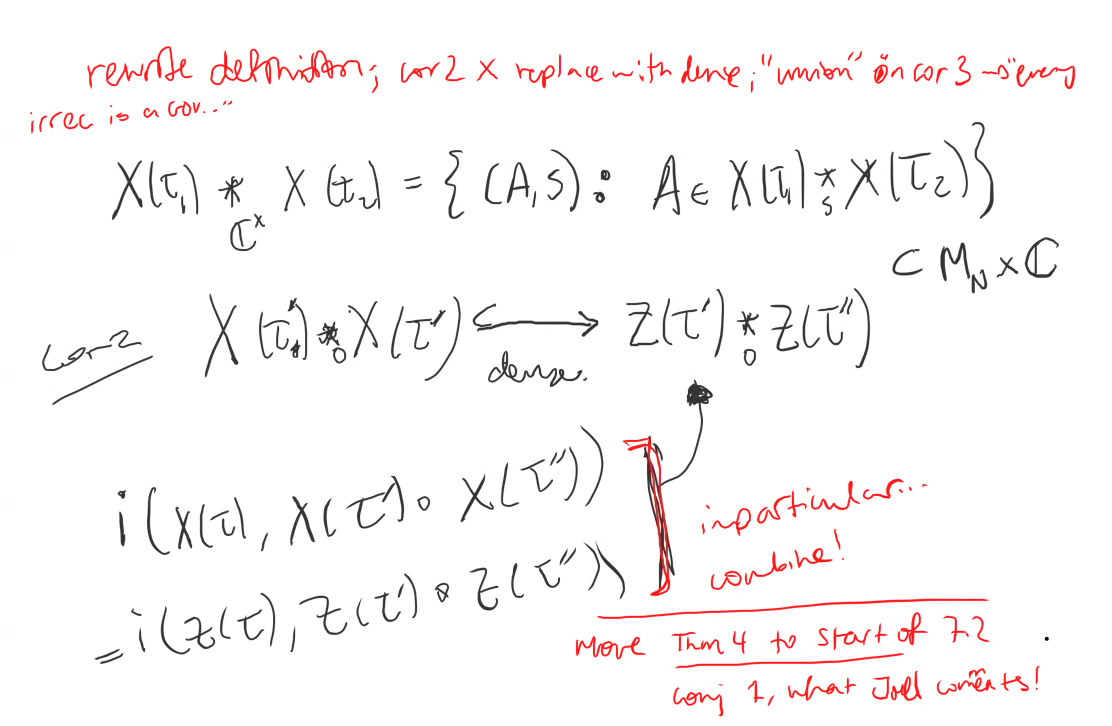 rewrite definition; cor 2 X replace with dense; "union" on cor 3 → "every
irrec is a cov..."
X(τ₁) *_{ℂ^×} X(τ₂) = { (A,s) : A ∈ X(τ₁) *_s X(τ₂) }
⊂ M_N × ℂ
cor 2 X(τ') *_0 X(τ'') ↪ Z(τ') *_0 Z(τ'')
dense.
i(X(τ), X(τ') ∘ X(τ''))
in particular...
combine!
= i(Z(τ), Z(τ') ∘ Z(τ''))
Move Thm 4 to start of 7.2
conj 1, what Joel comments!